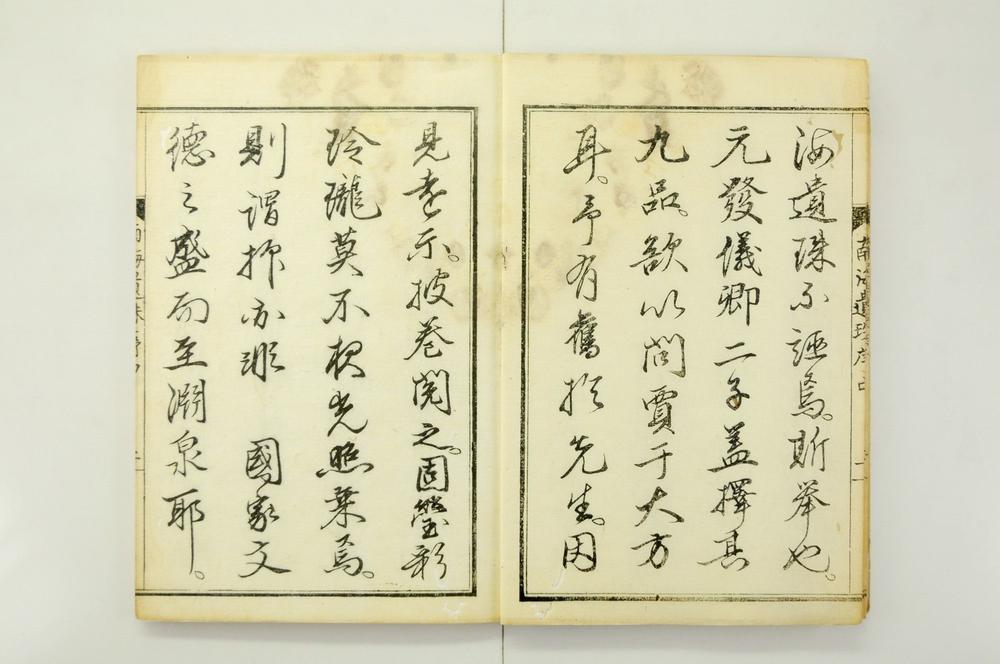 海遺珠不誣焉。斯举也。
元發儀卿二子蓋擇其
九品。欲以問賈于大方
耳。予有舊於先生。因
見遠示。披卷閱之。固瑩彩
玲瓏莫不根光照乗焉。
則謂抑亦非 國家文
德之盛而至淵泉耶。
南海遺珠序